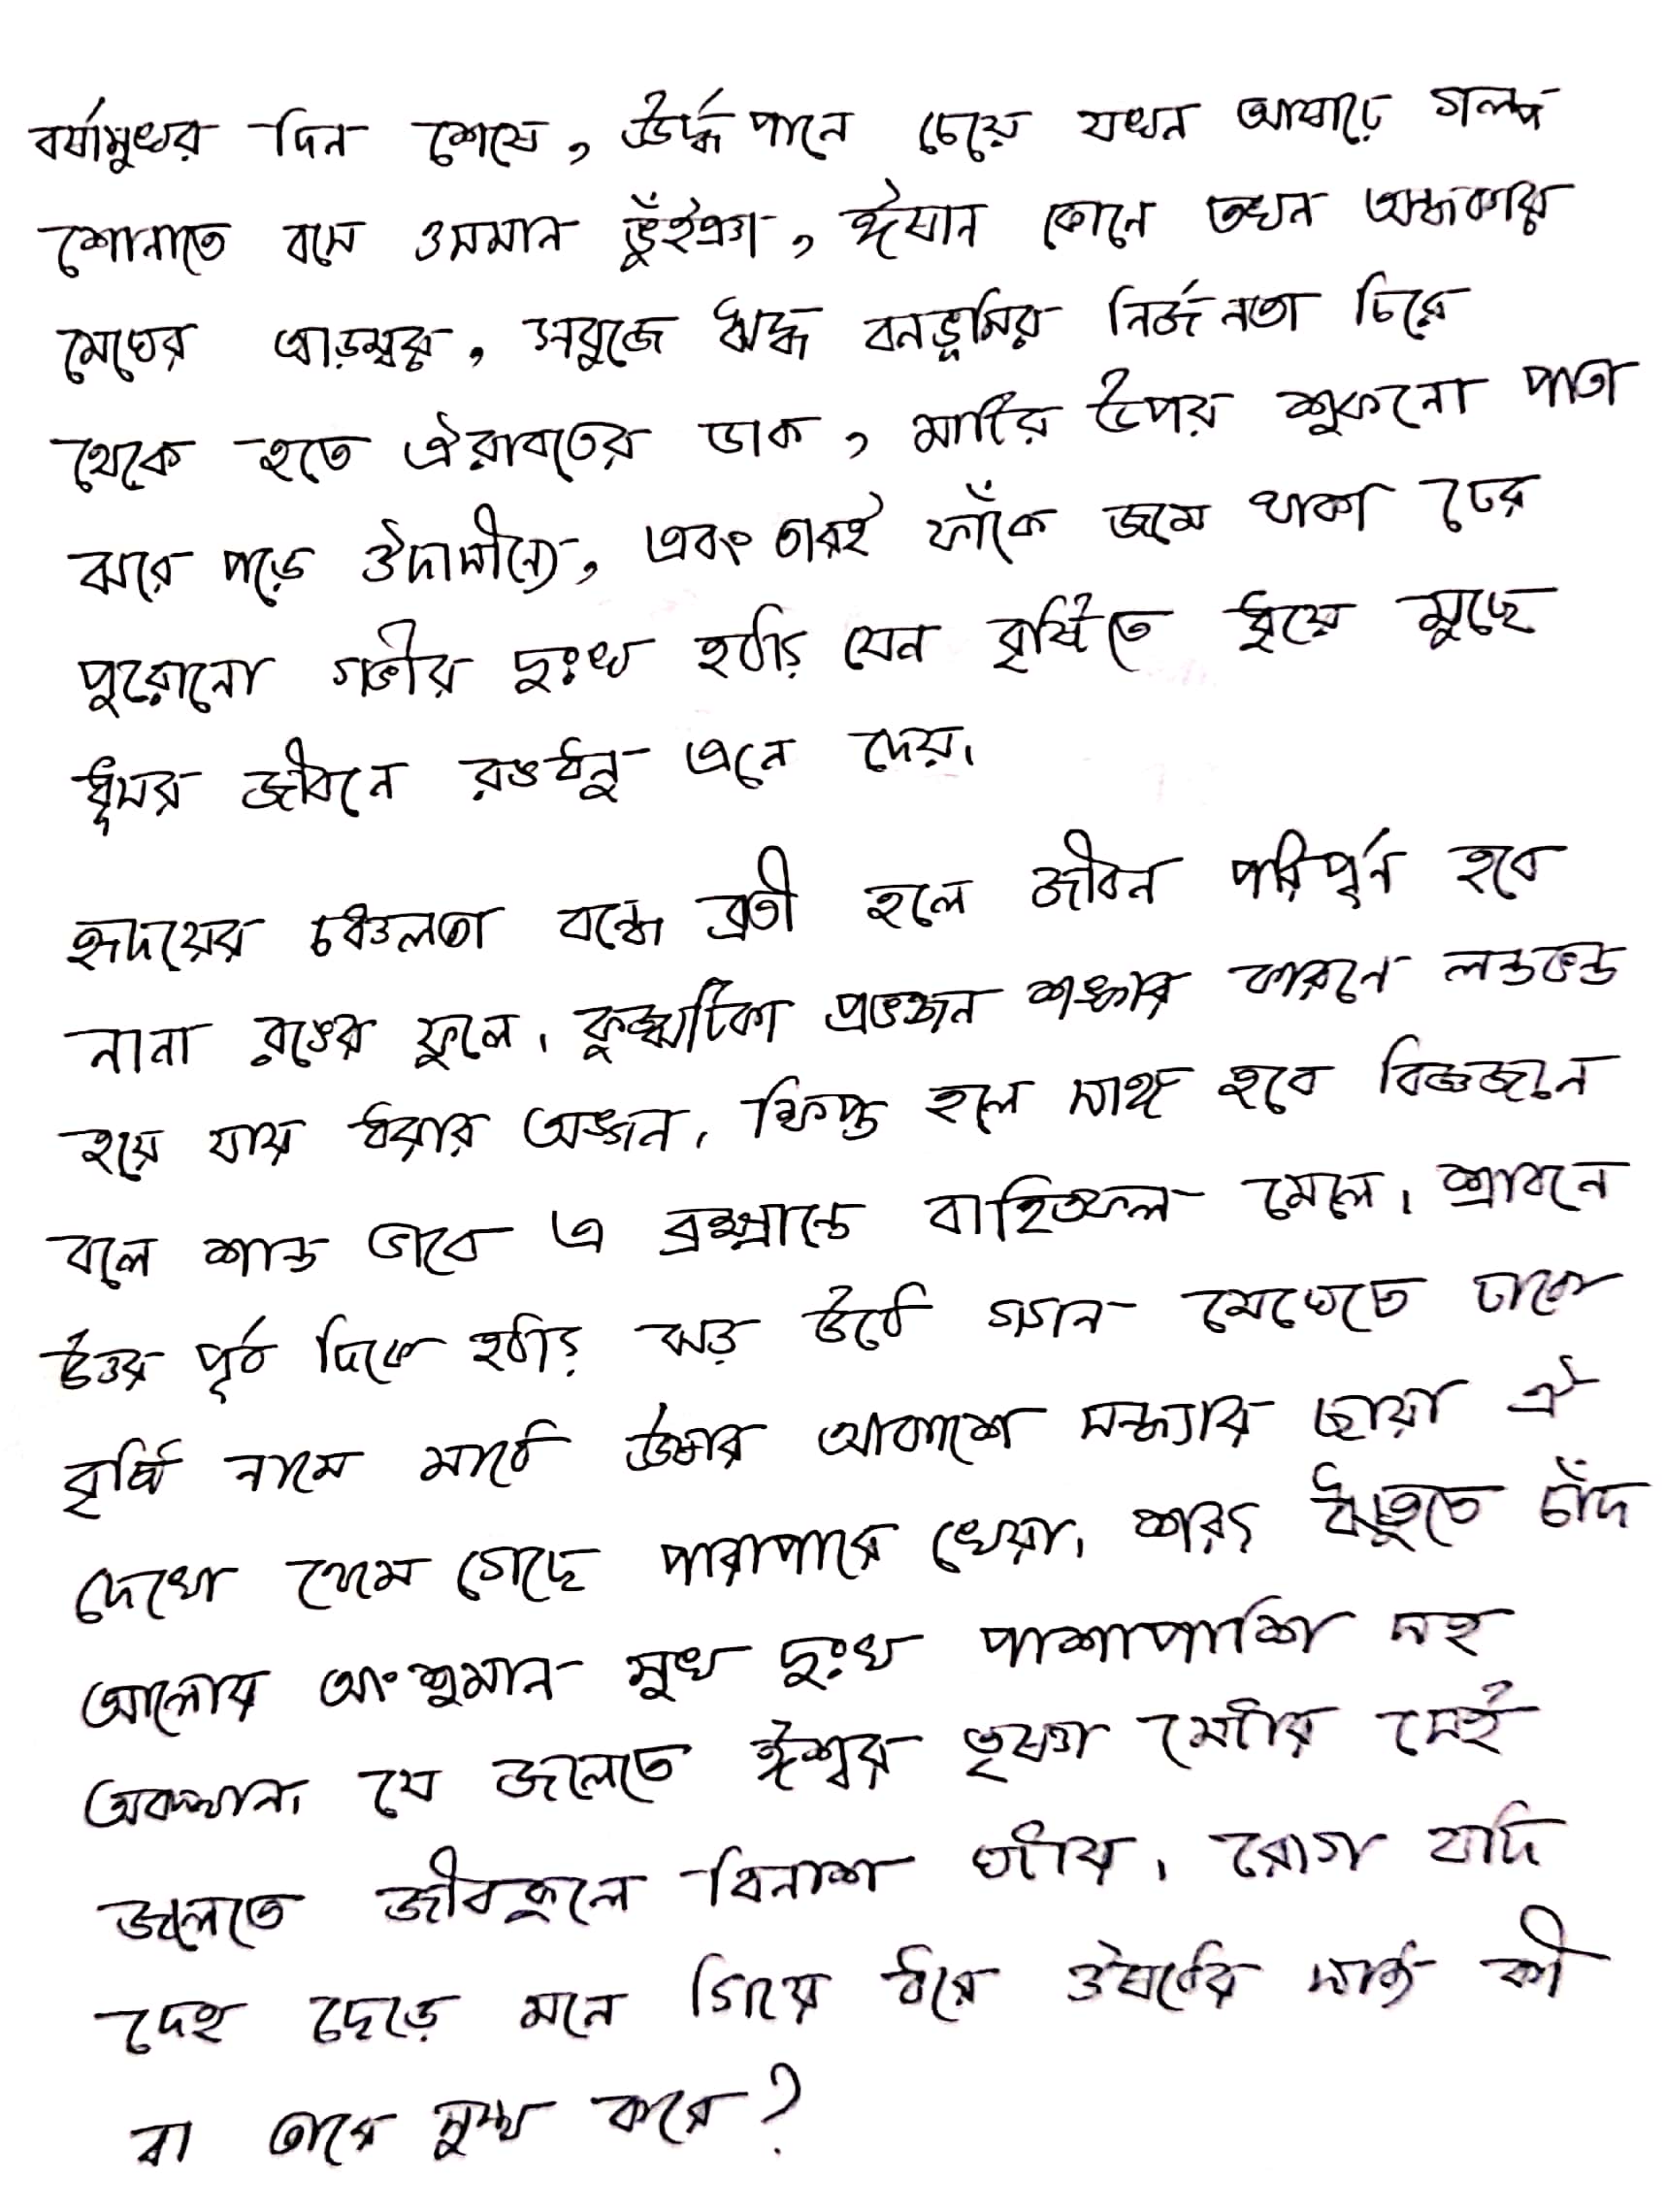 বর্ষামুখর দিন শেষে, ঊর্দ্ধপানে চেয়ে যখন আষাঢ়ে গল্প
শোনাতে বসে ওসমান ভুঁইঞা, ঈষান কোনে তখন অন্ধকার
মেঘের আড়ম্বর, সবুজে ঋদ্ধ বনভূমির নির্জনতা চিরে
থেকে হতে ঐরাবতের ডাক, মাটির উপর শুকনো পাতা
ঝরে পড়ে ঔদাসীন্যে, এবং তারই ফাঁকে জমে থাকা ঢের
পুরোনো গভীর দুঃখ হঠাৎ যেন বৃষ্টিতে ধুয়ে মুছে
ধূসর জীবনে রঙধনু এনে দেয়।
হৃদয়ের চঞ্চলতা বন্ধে ব্রতী হলে জীবন পরিপূর্ন হবে
নানা রঙের ফুলে। কুজ্ঝটিকা প্রভঞ্জন শঙ্কার কারনে লন্ডভন্ড
হয়ে যায় ধরার অঙ্গন। ক্ষিপ্ত হলে সাঙ্গ হবে বিজ্ঞজনে
বলে শান্ত ভাবে এ ব্রহ্মান্ডে বাহিতফল মেলে। শ্রাবনে
উত্তর পূর্ব দিকে হঠাৎ ঝড় উঠে গগন মেঘেতে ঢাকে
বৃষ্টি নামে মাঠে ঊষার আকাশে সন্ধ্যার ছায়া ঐ
দেখো থেমে গেছে পারাপারে খেয়া। শরৎ ঋতুতে চাঁদ
আলোয় অংশুমান সুখ দুঃখ পাশাপাশি সহ
অবস্থান। যে জলেতে ঈশ্বর তৃষ্ণা মেটায় সেই
জলেতে জীবকুলে বিনাশ ঘটায়। রোগ যদি
দেহ ছেড়ে মনে গিয়ে ধরে ঔষধের সাধ্য কী
বা তারে সুস্থ করে?